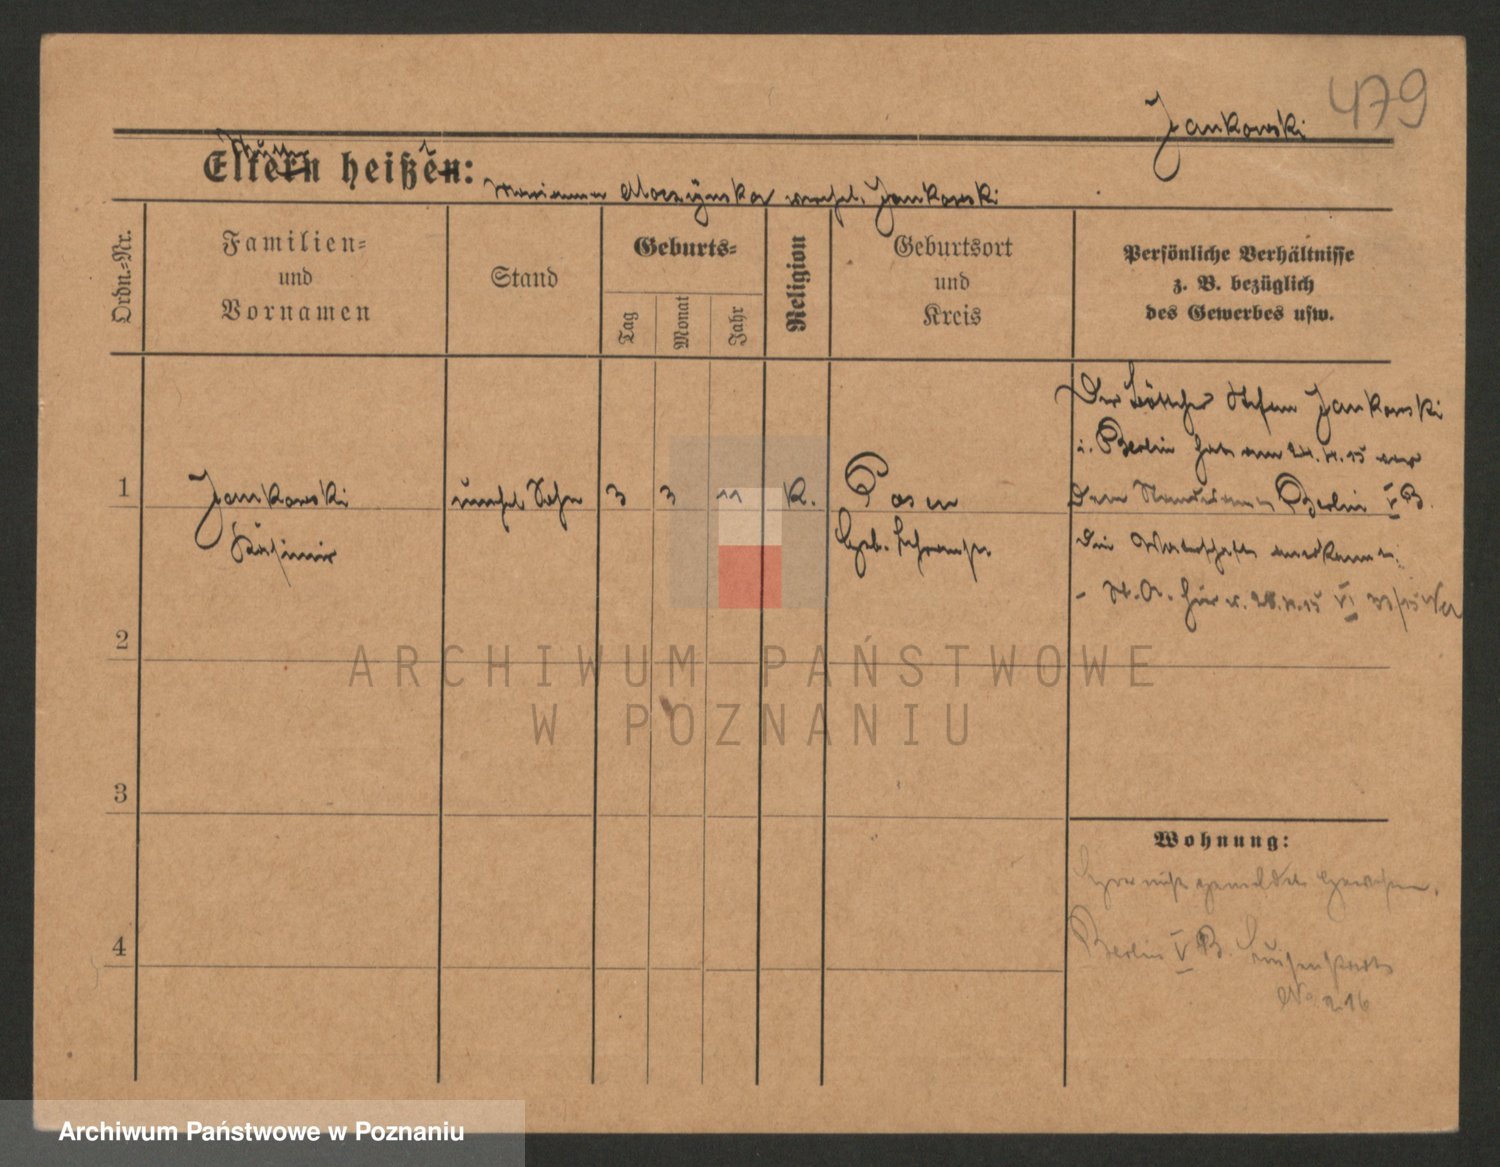 479
Jankowski
Mutter
Eltern heißen:
Marianna Moczynska verehel. Jankowski
Ordn.-Nr.
Familien-
und
Vornamen
Stand
Geburts-
Tag
Monat
Jahr
Religion
Geburtsort
und
Kreis
Persönliche Verhältnisse
z. B. bezüglich
des Gewerbes usw.
1
Jankowski
Kasimir
unehel Sohn
3
3
11
K.
Posen
Geb.
Der Böttcher Stefan Jankowski
i. Berlin hat am 24.4.15 vor
dem Standesamt Berlin V B.
die Vaterschaft anerkannt.
- St. A. hier v. 28.4.15 VI
2
3
4
Wohnung:
hier nicht gemeldet gewesen.
Berlin V B.
No
ARCHIWUM PAŃSTWOWE
W POZNANIU
Archiwum Państwowe w Poznaniu